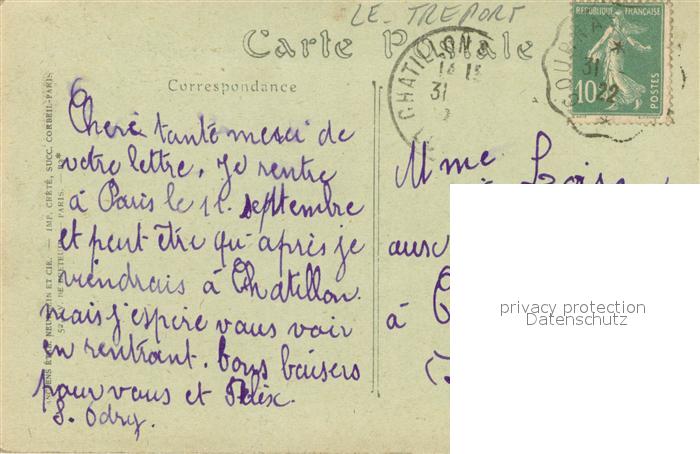 LE TREPORT
Carte Postale
Correspondance
Chere tante merci de
votre lettre. Je rentre
à Paris le 12 septembre
et peut être qu'après je
viendrais à Chatillon.
mais j'espère vous voir
en rentrant. bons baisers
pour vous et Félix.
S. Odry.
CHATILLON S
31
RÉPUBLIQUE FRANÇAISE
10c
POSTES
31
22
Mme
aux
à
privacy protection
Datenschutz
ANCIENS ETAB. NEURDEIN ET CIE. — IMP. CRÉTÉ, SUCC. CORBEIL-PARIS
52, AV. DE BRETEUIL - PARIS.